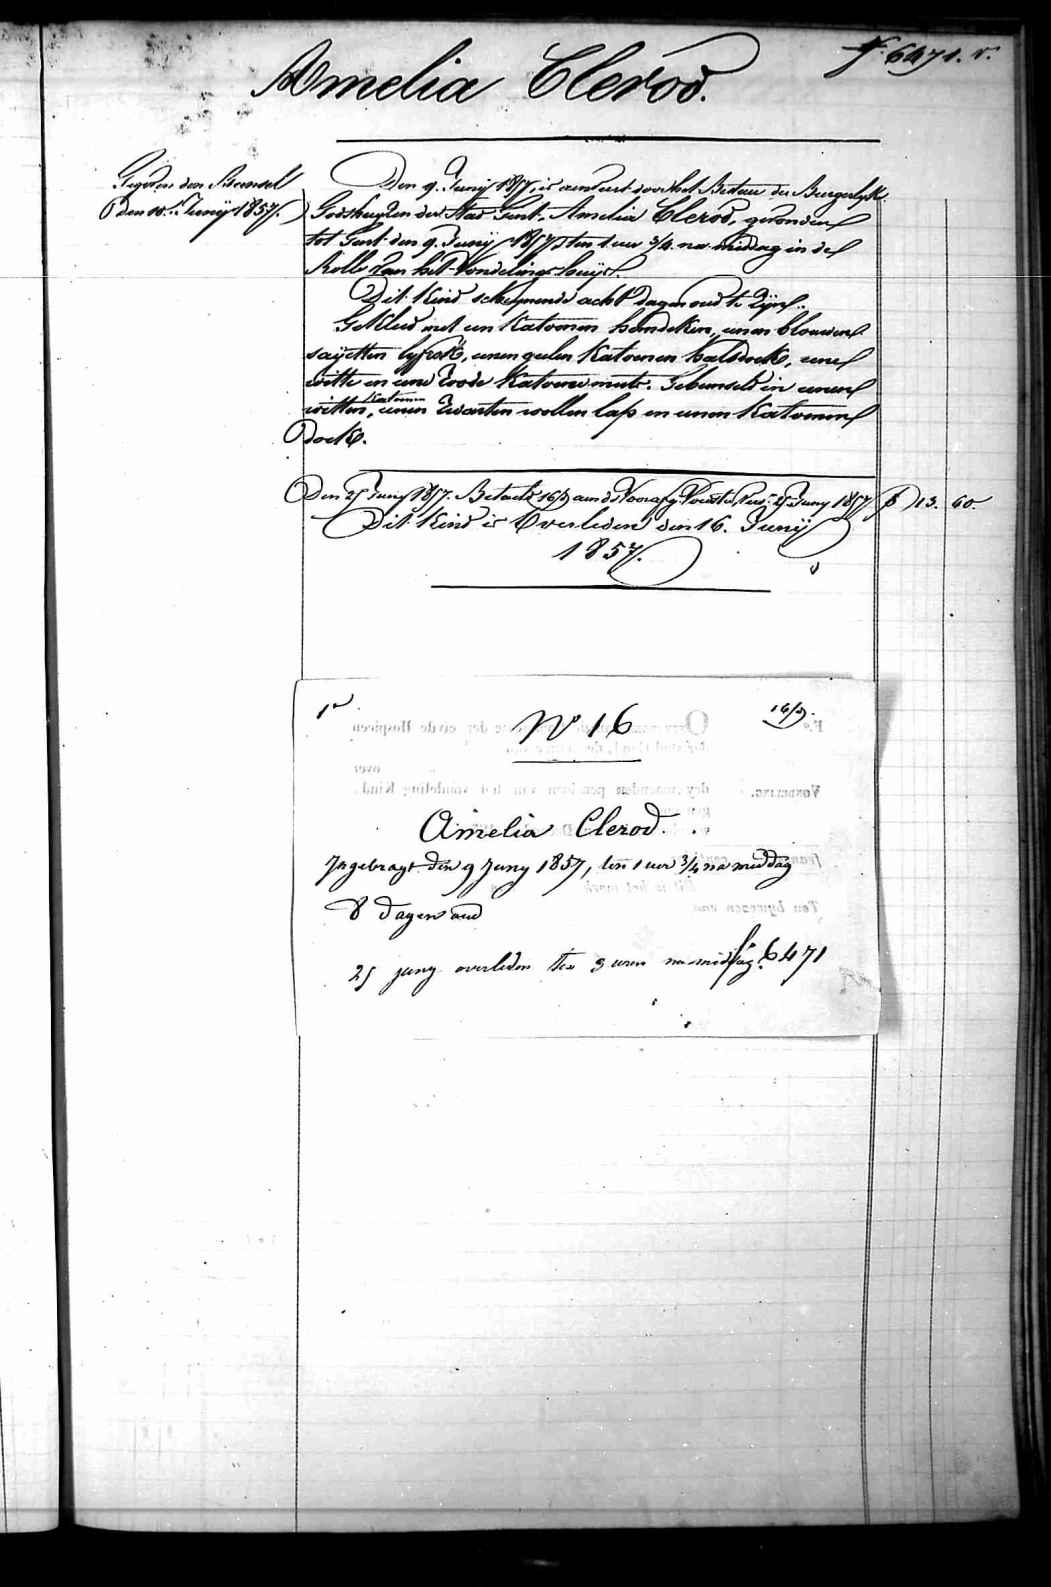 f.° 6471. v.
Amelia Clerod.
Gegeven den Bewusel
den 10.n Junij 1857.
Den 9. Junij 1857, is aenveert door het Bestier der Burgerlijke
Godshuyzen der Stad Gent, Amelia Clerod, gevonden
tot Gent den 9. Junij 1857, ten 1 uer 3/4 na middag in de
Rolle van het Vondelings huys.
Dit Kind schynende acht dagen oud te zyn.
Gekleed met een Katoenen hemdeken, eenen blauwen
sayetten lyfrok, eenen geelen Katoenen halsdoek, eene
witte en eene roode Katoene muts. Gebunseld in eenen
witten Katoenen, eenen zwarten wollen lap en eenen Katoenen
doek.
Den 25 Juny 1857. Betaeld 16/ aen de Voorzg. Voester, 25 Juny 1857 13. 60.
Dit Kind is Overleden den 16. Junij
1857.
1e N° 16 16/
Amelia Clerod.
Ingebragt den 9 Juny 1857, ten 1 uer 3/4 na middag
8 dagen oud
f° 6471
25 juny overleden ten 3 uren na middag.